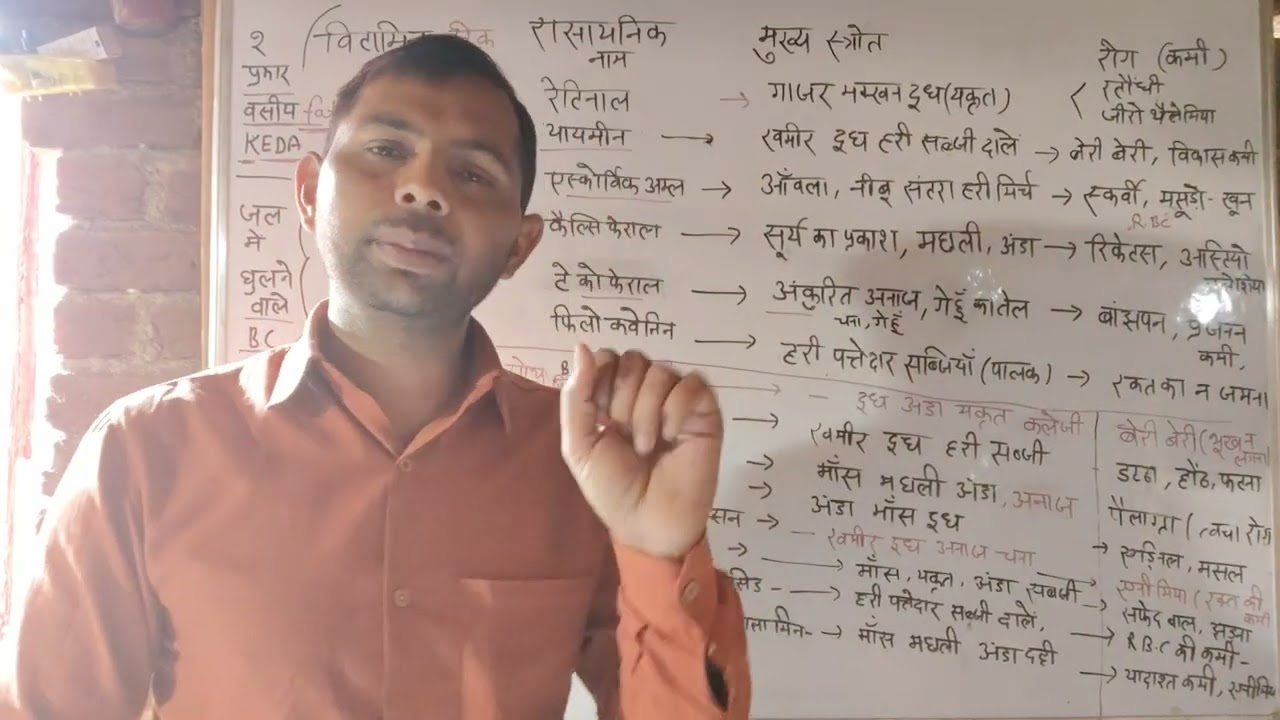 २ विटामिन रासायनिक मुख्य स्त्रोत रोग (कमी)
प्रकार नाम
वसीय रेटिनाल → गाजर मक्खन दूध (यकृत) रतौंधी
जीरो थैलेमिया
KEDA थायमीन → खमीर दूध हरी सब्जी दालें → बेरी बेरी, विकास कमी
एस्कोर्विक अम्ल → आँवला, नीबू संतरा हरी मिर्च → स्कर्वी, मसूड़ो - खून
R.BC
जल कैल्सिफेराल → सूर्य का प्रकाश, मछली, अंडा → रिकेटस, अस्टियो
में
घुलने टेकोफेराल → अंकुरित अनाज, गेहूँ का तेल → बांझपन, प्रजनन
चना, गेहूँ कमी,
वाले फिलोक्वेनिन → हरी पत्तेदार सब्जियाँ (पालक) → रक्त का न जमना
BC
B → - दूध अंडा यकृत कलेजी बेरी बेरी (भूख न लगना)
→ खमीर दूध हरी सब्जी होंठ, फटना
→ माँस मछली अंडा, अनाज पैलाग्रा (त्वचा रोग
→ अंडा माँस दूध
सन → - खमीर दूध अनाज चना → मसल
→ माँस, यकृत, अंडा सब्जी → एनीमिया (रक्त की कमी
सिड - → हरी पत्तेदार सब्जी दालें, सफेद बाल,
→ R.B.C की कमी -
लामिन - → माँस मछली अंडा दही → यादाश्त कमी,